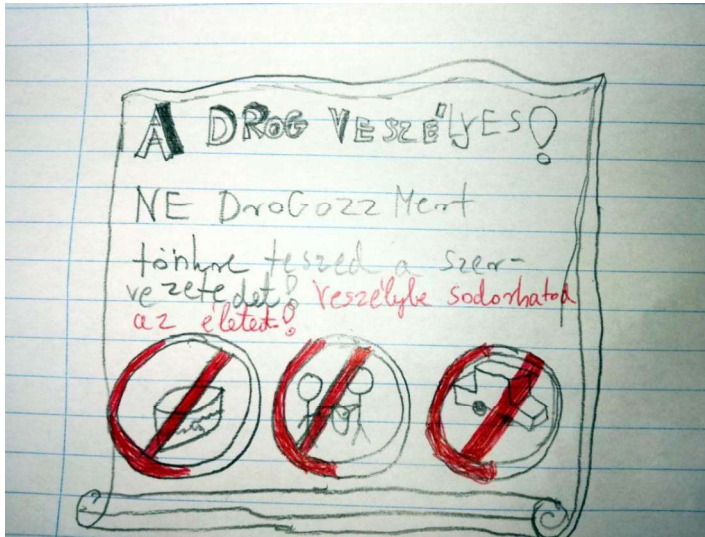 A DROG VESZÉLYES!
NE DroGozz Mert
tönkre teszed a szer-
vezetedet! Veszélybe sodorhatod
az életed!